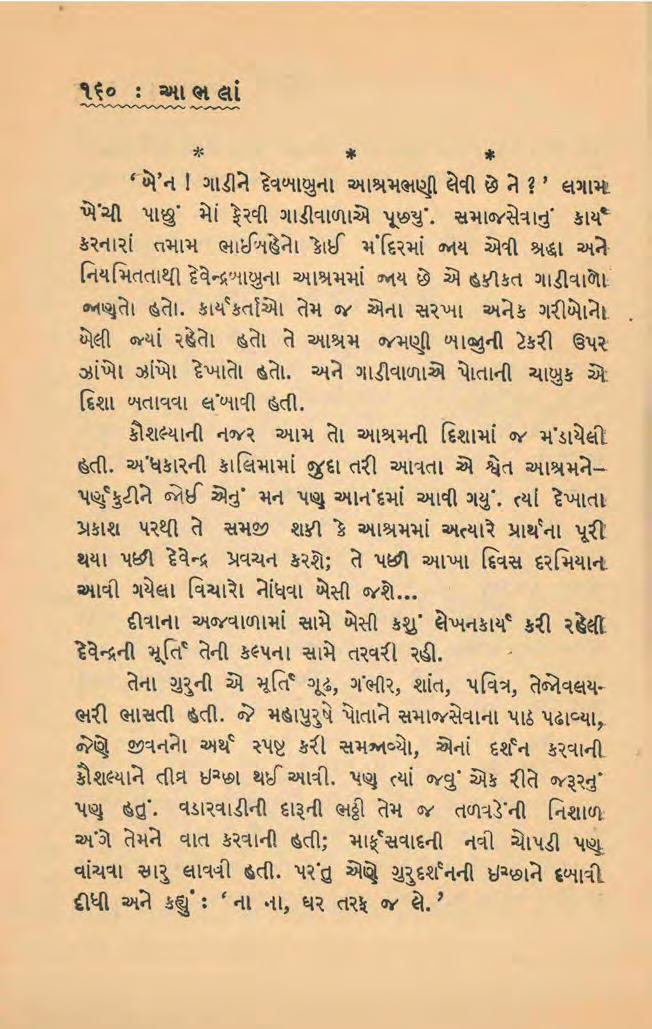 ૧૬૦ : આભલાં
* * *
‘બે’ન ! ગાડીને દેવબાબુના આશ્રમભણી લેવી છે ને ?’ લગામ
ખેંચી પાછું મોં ફેરવી ગાડીવાળાએ પૂછ્યું. સમાજસેવાનું કાર્ય
કરનારાં તમામ ભાઈબહેનો કોઈ મંદિરમાં જાય એવી શ્રદ્ધા અને
નિયમિતતાથી દેવેન્દ્રબાબુના આશ્રમમાં જાય છે એ હકીકત ગાડીવાળો
જાણતો હતો. કાર્યકર્તાઓ તેમ જ એના સરખા અનેક ગરીબોનો
બેલી જ્યાં રહેતો હતો તે આશ્રમ જમણી બાજુની ટેકરી ઉપર
ઝાંખો ઝાંખો દેખાતો હતો. અને ગાડીવાળાએ પોતાની ચાબુક એ
દિશા બતાવવા લંબાવી હતી.
કૌશલ્યાની નજર આમ તો આશ્રમની દિશામાં જ મંડાયેલી
હતી. અંધકારની કાલિમામાં જુદા તરી આવતા એ શ્વેત આશ્રમને–
પર્ણકુટીને જોઈ એનું મન પણ આનંદમાં આવી ગયું. ત્યાં દેખાતા
પ્રકાશ પરથી તે સમજી શકી કે આશ્રમમાં અત્યારે પ્રાર્થના પૂરી
થયા પછી દેવેન્દ્ર પ્રવચન કરશે; તે પછી આખા દિવસ દરમિયાન
આવી ગયેલા વિચારો નોંધવા બેસી જશે...
દીવાના અજવાળામાં સામે બેસી કશું લેખનકાર્ય કરી રહેલી
દેવેન્દ્રની મૂર્તિ તેની કલ્પના સામે તરવરી રહી.
તેના ગુરુની એ મૂર્તિ ગૂઢ, ગંભીર, શાંત, પવિત્ર, તેજોવલય-
ભરી ભાસતી હતી. જે મહાપુરુષે પોતાને સમાજસેવાના પાઠ પઢાવ્યા,
જેણે જીવનનો અર્થ સ્પષ્ટ કરી સમજાવ્યો, એનાં દર્શન કરવાની
કૌશલ્યાને તીવ્ર ઇચ્છા થઈ આવી. પણ ત્યાં જવું એક રીતે જરૂરનું
પણ હતું. વડારવાડીની દારૂની ભઠ્ઠી તેમ જ તળાવડેની નિશાળ
અંગે તેમને વાત કરવાની હતી; માર્ક્સવાદની નવી ચોપડી પણ
વાંચવા સારુ લાવવી હતી. પરંતુ એણે ગુરુદર્શનની ઇચ્છાને દબાવી
દીધી અને કહ્યું : ‘ના ના, ઘર તરફ જ લે.’